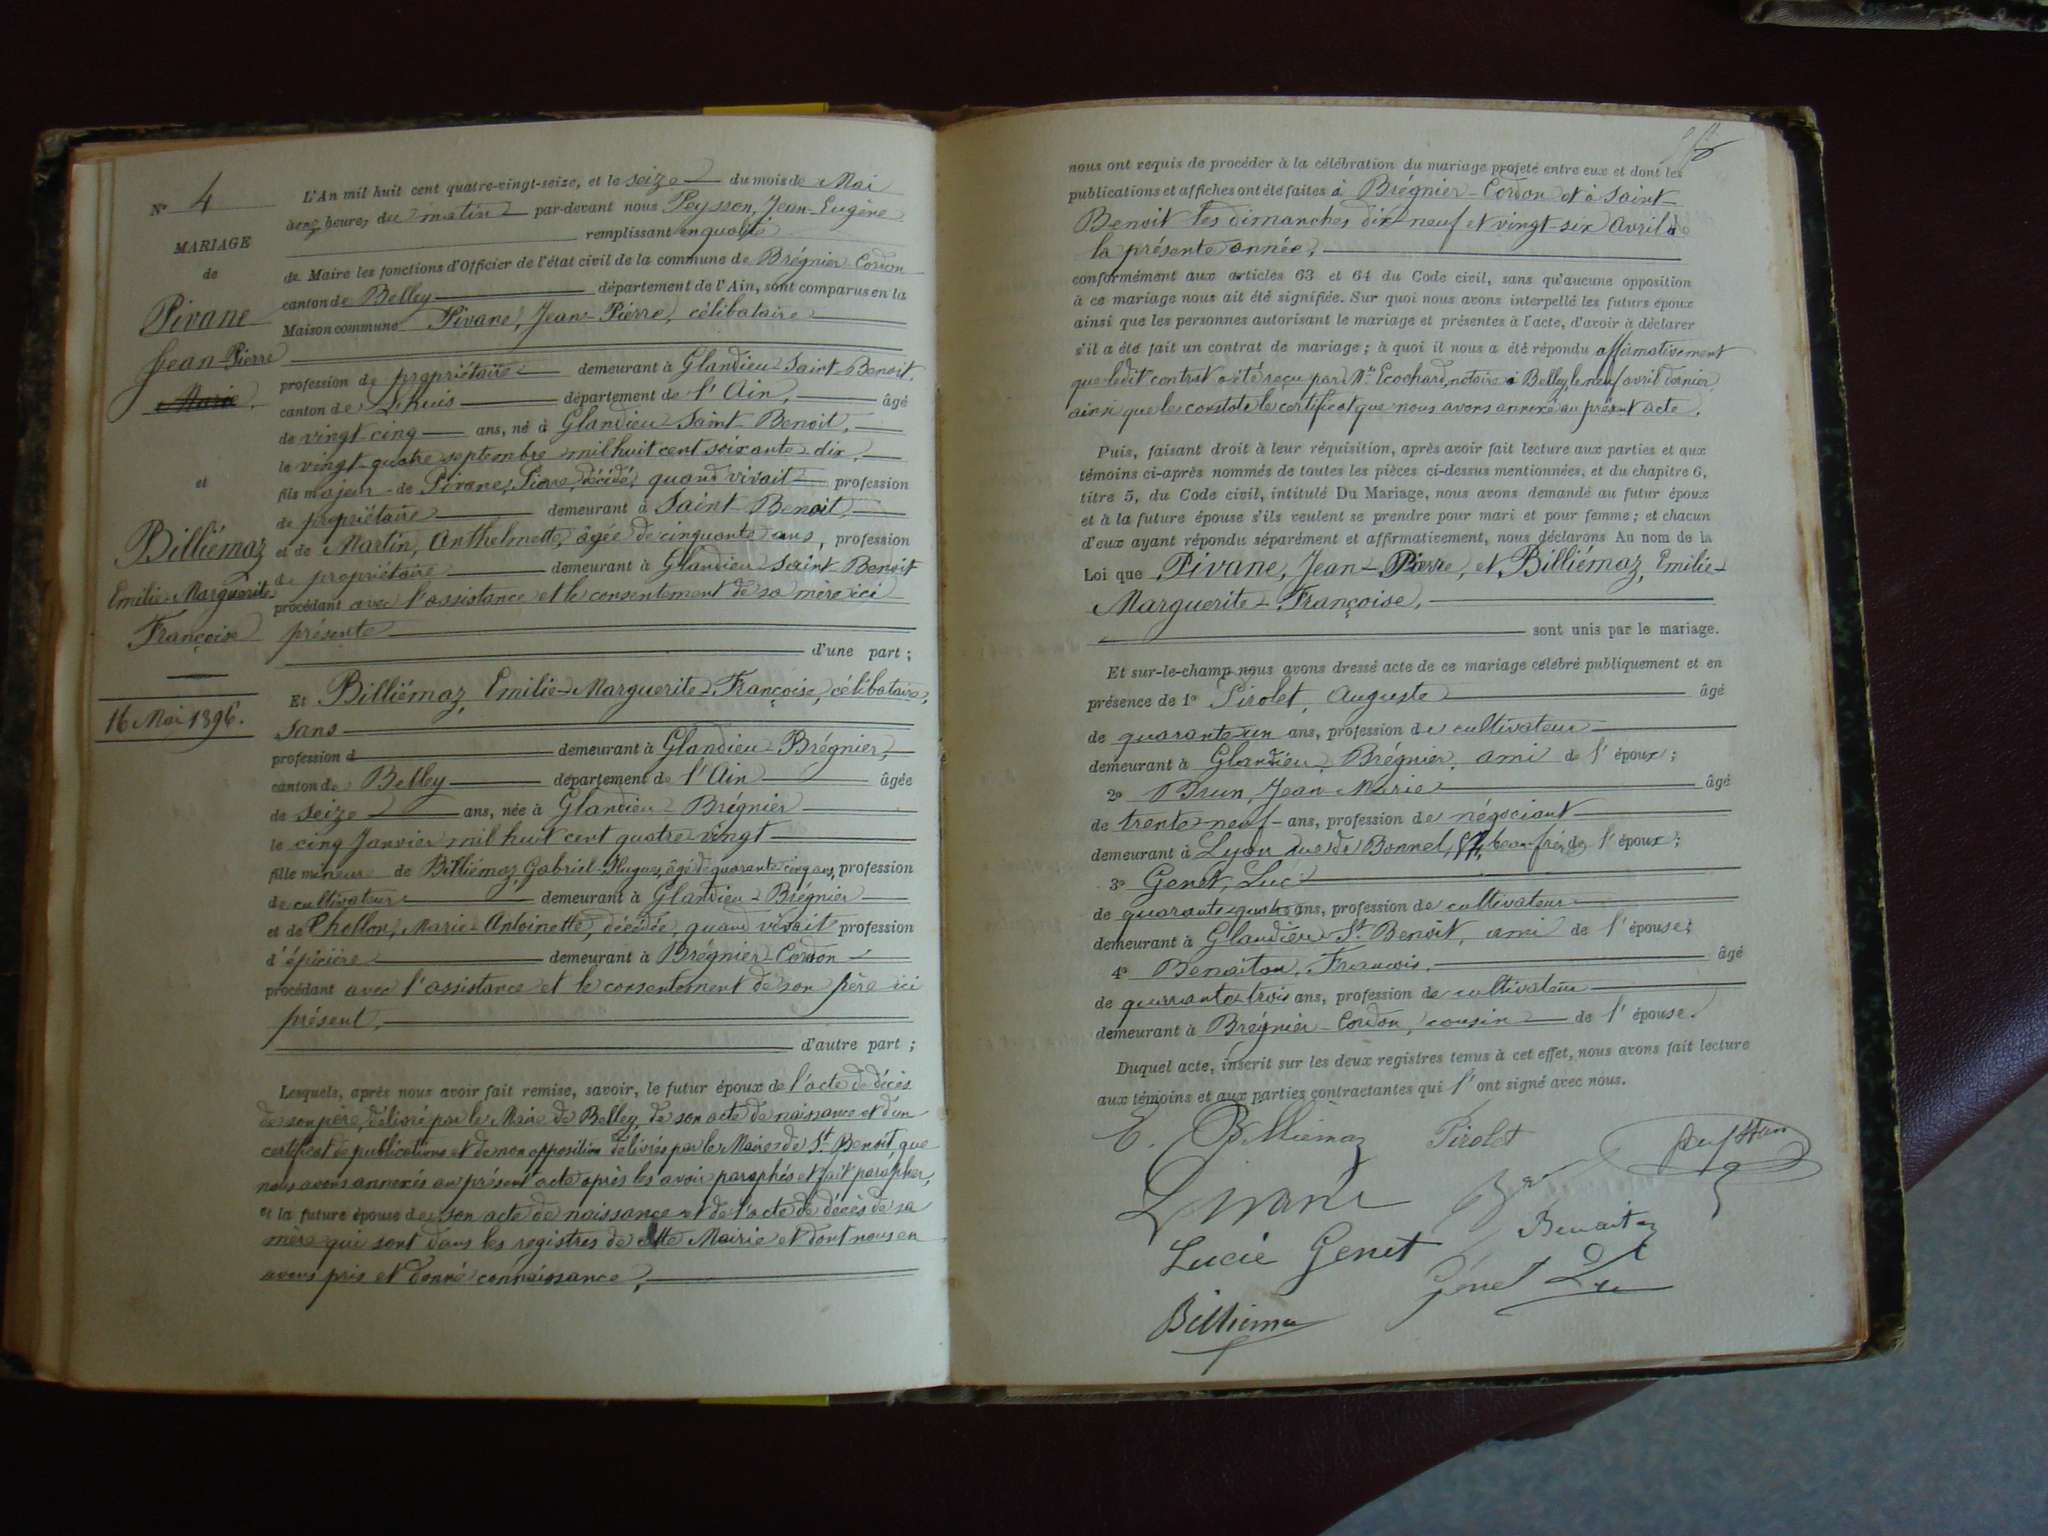 N° 4
MARIAGE
de
Pivane
Jean-Pierre
Marie
et
Billiémaz
Emilie-Marguerite
Françoise
16 Mai 1896.
L'An mil huit cent quatre-vingt-seize, et le seize du mois de Mai
heures du matin par-devant nous Peysson, Jean-Eugène
remplissant en qualité
de Maire les fonctions d'Officier de l'état civil de la commune de Brégnier-Cordon
canton de Belley département de l'Ain, sont comparus en la
Maison commune Pivane, Jean-Pierre, célibataire
profession de propriétaire demeurant à Glandieu-Saint-Benoit,
canton de Lhuis département de l'Ain, âgé
de vingt-cinq ans, né à Glandieu-Saint-Benoit,
le vingt-quatre septembre mil huit cent soixante-dix,
fils majeur de Pivane, Pierre, décédé, quand vivait profession
de propriétaire demeurant à Saint-Benoit
et de Martin, Anthelmette, âgée de cinquante ans, profession
de propriétaire demeurant à Glandieu-Saint Benoit
procédant avec l'assistance et le consentement de sa mère ici
présente
d'une part ;
Et Billiémaz, Emilie-Marguerite-Françoise, célibataire,
sans
profession d demeurant à Glandieu-Brégnier,
canton de Belley département de l'Ain âgée
de seize ans, née à Glandieu-Brégnier
le cinq Janvier mil huit cent quatre-vingt
fille mineure de Billiémaz, Gabriel-Hugues, âgé de quarante cinq ans, profession
de cultivateur demeurant à Glandieu-Brégnier
et de Chollon, Marie-Antoinette, décédée, quand vivait profession
d'épicière demeurant à Brégnier-Cordon
procédant avec l'assistance et le consentement de son père ici
présent,
d'autre part ;
Lesquels, après nous avoir fait remise, savoir, le futur époux de l'acte de décès
de son père, délivré par le Maire de Belley, de son acte de naissance et d'un
certificat de publications et de non opposition délivrés par le Maire de St. Benoit que
nous avons annexés au présent acte après les avoir paraphés et fait parapher,
et la future épouse de son acte de naissance et de l'acte de décès de sa
mère qui sont dans les registres de cette Mairie et dont nous en
avons pris et donné connaissance,
nous ont requis de procéder à la célébration du mariage projeté entre eux et dont les
publications et affiches ont été faites à Brégnier-Cordon et à Saint-
Benoit les dimanches dix-neuf et vingt-six Avril de
la présente année,
conformément aux articles 63 et 64 du Code civil, sans qu'aucune opposition
à ce mariage nous ait été signifiée. Sur quoi nous avons interpellé les futurs époux
ainsi que les personnes autorisant le mariage et présentes à l'acte, d'avoir à déclarer
s'il a été fait un contrat de mariage ; à quoi il nous a été répondu affirmativement
que ledit contrat a été reçu par Me Ecochard, notaire à Belley, le neuf avril dernier
ainsi que le constate le certificat que nous avons annexé au présent acte.
Puis, faisant droit à leur réquisition, après avoir fait lecture aux parties et aux
témoins ci-après nommés de toutes les pièces ci-dessus mentionnées, et du chapitre 6,
titre 5, du Code civil, intitulé Du Mariage, nous avons demandé au futur époux
et à la future épouse s'ils veulent se prendre pour mari et pour femme ; et chacun
d'eux ayant répondu séparément et affirmativement, nous déclarons Au nom de la
Loi que Pivane, Jean-Pierre, et Billiémaz, Emilie-
Marguerite-Françoise,
sont unis par le mariage.
Et sur-le-champ nous avons dressé acte de ce mariage célébré publiquement et en
présence de 1° Pirolet, Auguste âgé
de quarante-un ans, profession de cultivateur
demeurant à Glandieu, Brégnier, ami de l'époux ;
2° Brun, Jean-Marie âgé
de trente-neuf ans, profession de négociant
demeurant à Lyon rue de Bonnel, beau frère de l'époux ;
3° Genet, Luc
de quarante-quatre ans, profession de cultivateur
demeurant à Glandieu-St. Benoit, ami de l'épouse ;
4° Benaiton, François, âgé
de quarante-trois ans, profession de cultivateur
demeurant à Brégnier-Cordon, cousin de l'épouse.
Duquel acte, inscrit sur les deux registres tenus à cet effet, nous avons fait lecture
aux témoins et aux parties contractantes qui l'ont signé avec nous.
E. Billiémaz Pirolet
Pivane
Benaiton
Lucie Genet
Genet Luc
Billiémaz